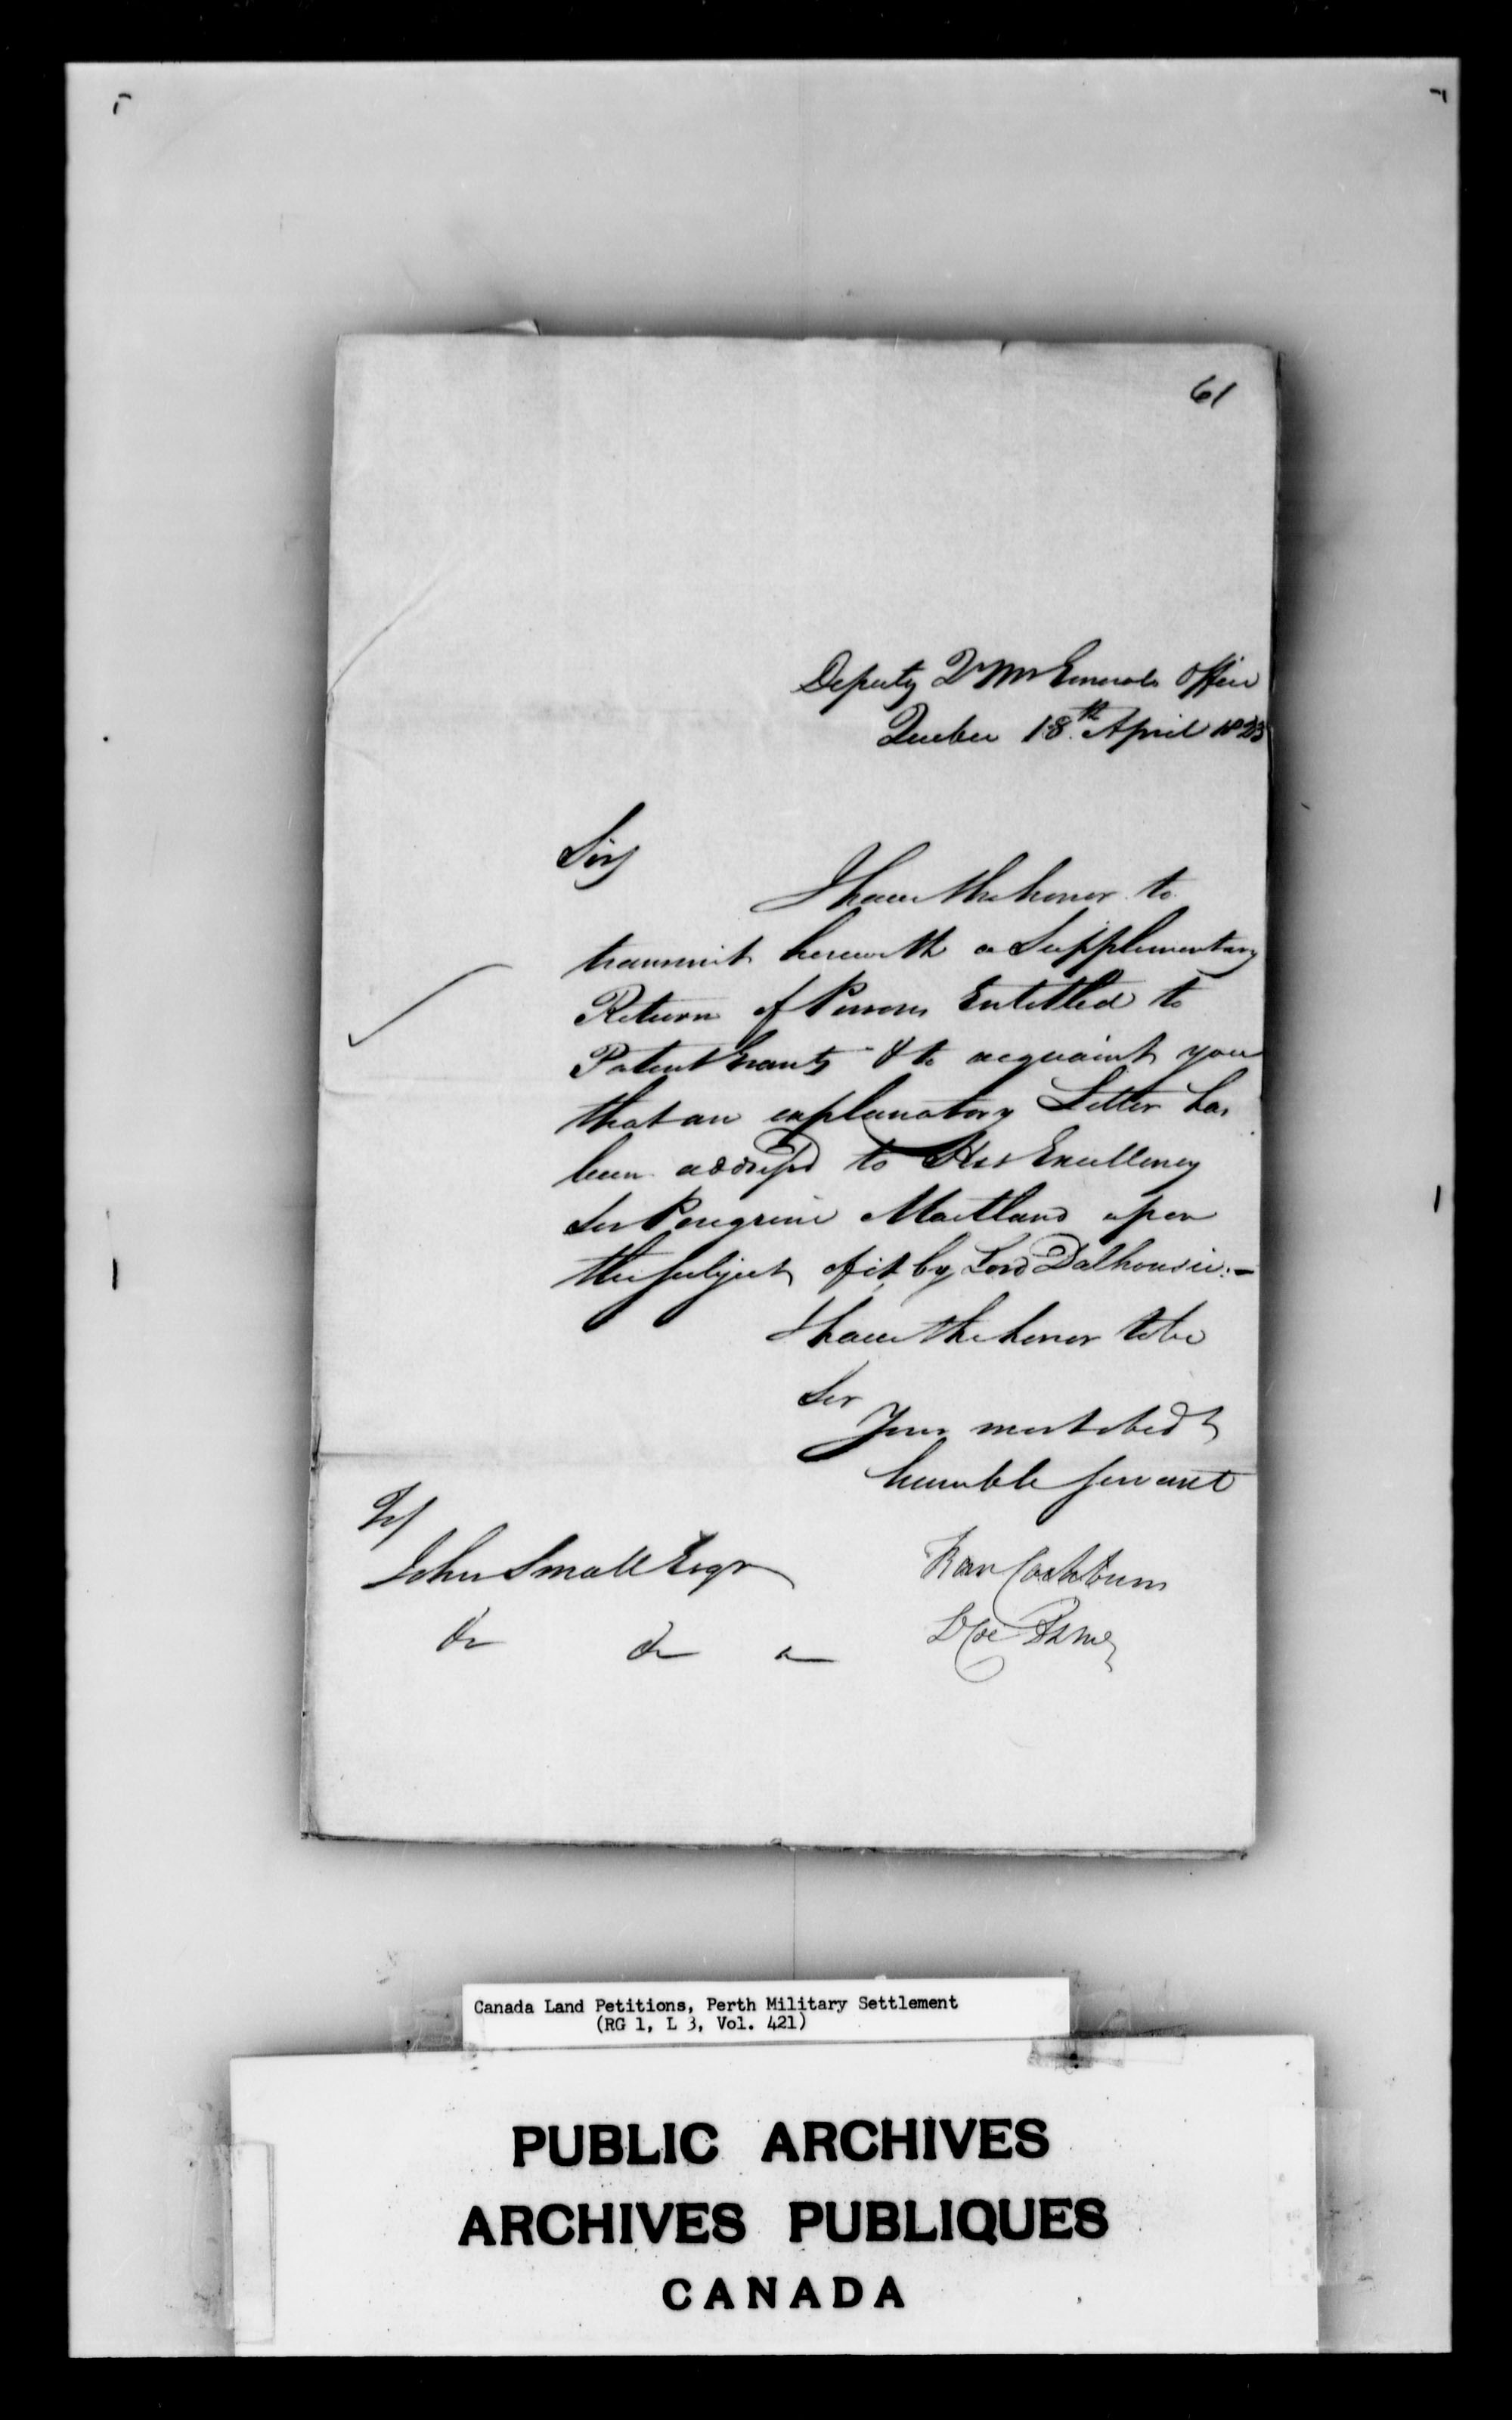 61
Deputy Q M Generals Office
Quebec 18th April 1823
Sir
I have the honor to
transmit herewith a Supplementary
Return of Persons Entitled to
Patent Grants & to acquaint you
that an explanatory Letter has
been addressd to His Excellency
Sir Peregrine Maitland upon
the subject of it by Lord Dalhousie.—
I have the honor to be
Sir
Your most obedt
humble servant
To/
John Small Esqr
&c &c &c
Fran Cockburn
Canada Land Petitions, Perth Military Settlement
(RG 1, L 3, Vol. 421)
PUBLIC ARCHIVES
ARCHIVES PUBLIQUES
CANADA